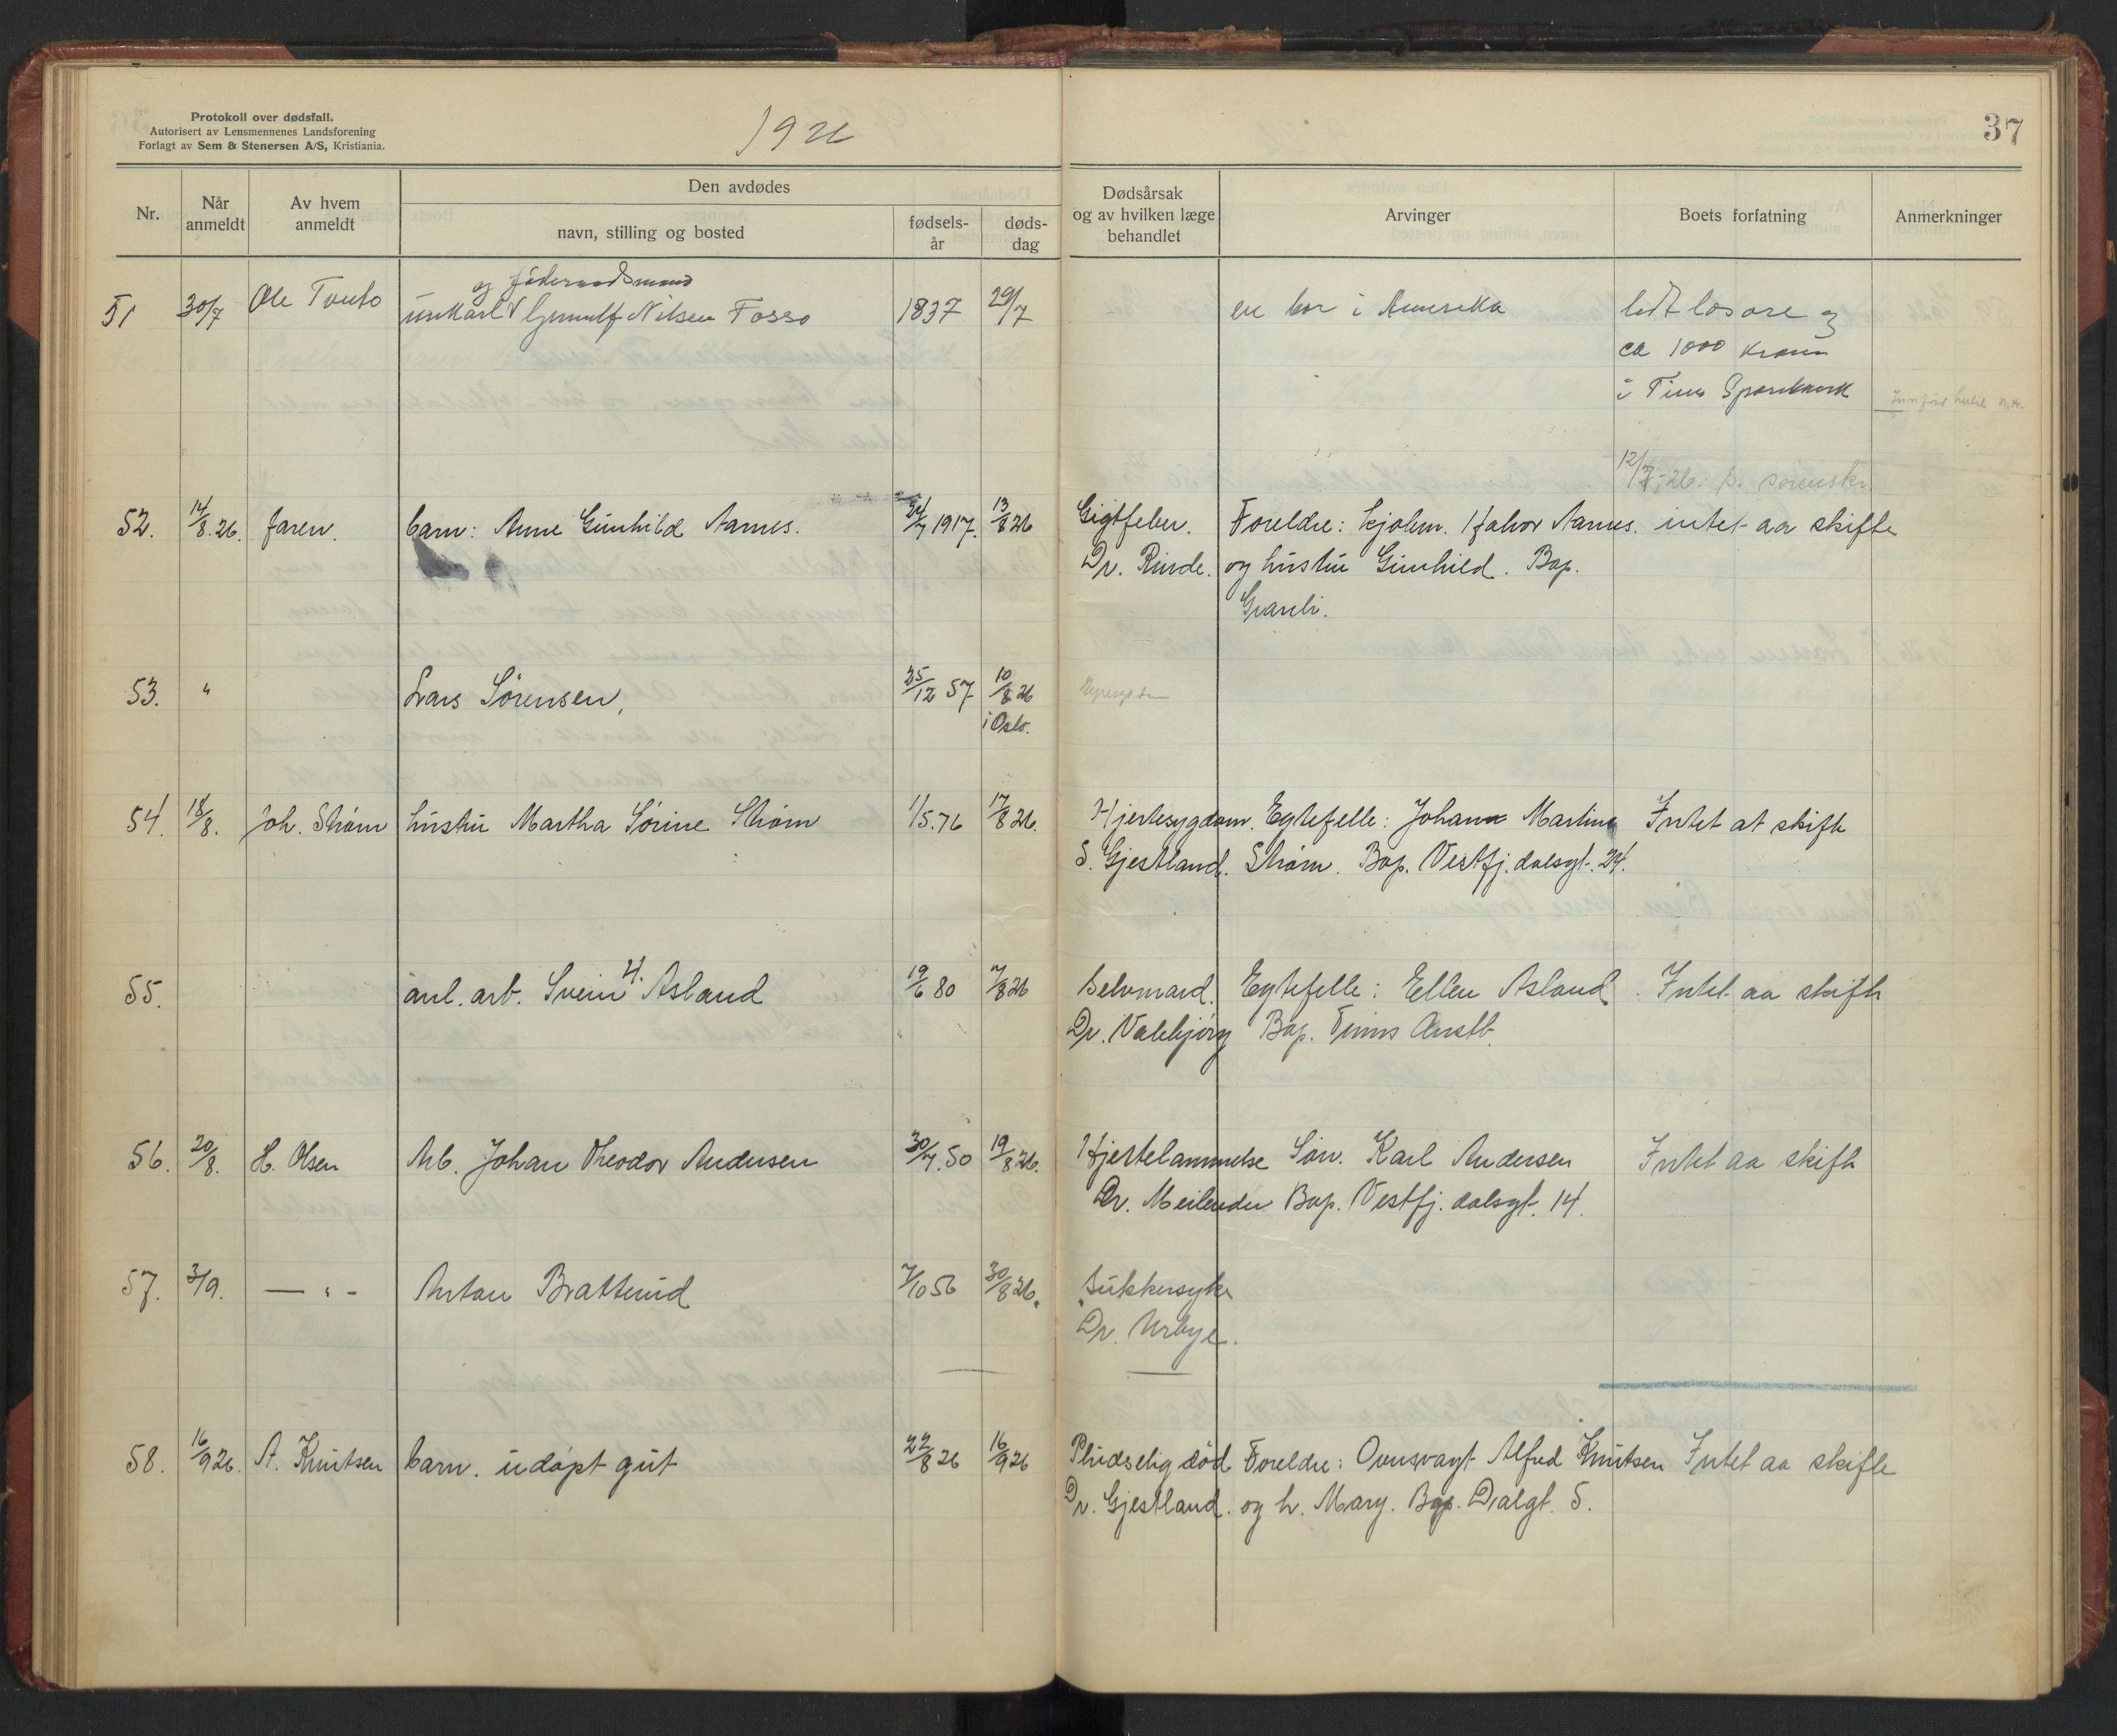 Protokoll over dødsfall.
Autorisert av Lensmennenes Landsforening
Forlagt av Sem & Stenersen A/S, Kristiania.
1926
37
Nr.
Når anmeldt
Av hvem anmeldt
Den avdødes
navn, stilling og bosted
fødsels-år
døds-dag
Dødsårsak og av hvilken læge behandlet
Arvinger
Boets forfatning
Anmerkninger
og föderaadsmand
51 30/7 Ole Tveito unkarl V Gunnulf Nilsen Fosso 1837 29/7 en bor i Amerika lidt løsøre og
ca 1000 kroner
i Tinns Sparebank
12/7-26.
52. 14/8.26. faren. barn: Anne Gunhild Aarnes. 24/7 1917. 13/8 26 Gigtfeber. Foreldre: Halvor Aarnes. intet aa skifte
Dr. Rinde. og hustru Gunhild. Bop.
Granli.
53. " Lars Sørensen, 25/12 57 10/8 26
i Oslo.
54. 18/8. Joh. Strøm hustru Martha Sørine Strøm 1/5.76 17/8 26. Hjertesygdom. Egtefelle: Johan Martin Intet at skifte
S. Gjestland. Strøm. Bop. Vestfj.dalsgt. 24.
55. anl. arb. Svein H. Asland 19/6 80 7/8 26 Selvmord. Egtefelle: Ellen Asland. Intet aa skifte
Dr. Valebjørg Bop. Tinns Austb.
56. 20/8. H. Olsen Arb. Johan Theodor Andersen 30/7.50 19/8 26. Hjertelammelse Søn. Karl Andersen Intet aa skifte
Dr. Meilender Bop. Vestfj.dalsgt. 14.
57. 3/9. — " - Anton Bratterud 7/10 56 30/8 26. Sukkersyke
Dr. Urbye.
58. 16/9 26. A. Knutsen barn. udøpt gut 22/8 26 16/9 26 Pludselig død Foreldre: Ovnsvagt Alfred Knutsen Intet aa skifte
Dr. Gjestland. og h. Mary. Bop. Dalgt. 5.